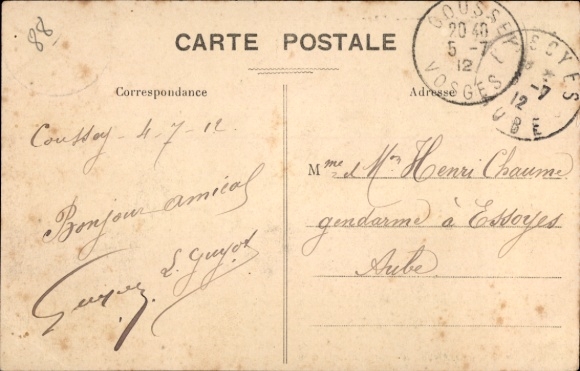 88
CARTE POSTALE
COUSSEY
20 40
5 -7
12
VOSGES
-7
12
AUBE
Correspondance
Adresse
Coussey 4-7-12
Bonjour amical
L. Guyot
Mme et Mr Henri Chaume
gendarme à Essoyes
Aube